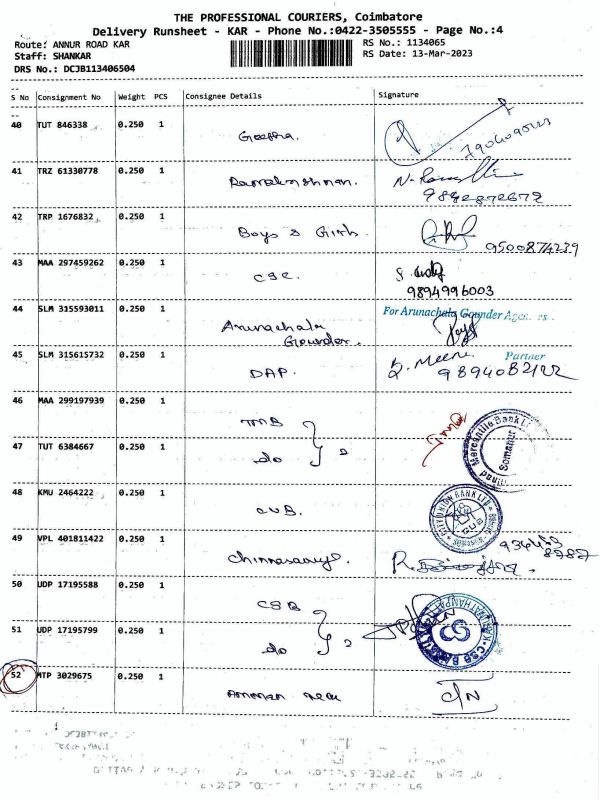 THE PROFESSIONAL COURIERS, Coimbatore
Delivery Runsheet - KAR - Phone No.:0422-3505555 - Page No.:4
Route: ANNUR ROAD KAR
RS No.: 1134065
Staff: SHANKAR
RS Date: 13-Mar-2023
DRS No.: DCJB113406504
S No Consignment No Weight PCS Consignee Details Signature
40 TUT 846338 0.250 1
Geetha.
41 TRZ 61330778 0.250 1
Ramakrishnan.
9842872672
42 TRP 1676832 0.250 1
Boys & Girls
9500874239
43 MAA 297459262 0.250 1
CSC.
9894996003
44 SLM 315593011 0.250 1
For Arunachala Gounder Agencies.
Arunachala
Gounder.
45 SLM 315615732 0.250 1
Partner
DAP.
46 MAA 299197939 0.250 1
TMB
Mercantile Bank
Somanur
47 TUT 6384667 0.250 1
do } 2
48 KMU 2464222 0.250 1
CUB.
CITY UNION BANK LTD
CUB
49 VPL 401811422 0.250 1
Chinnasamy.
50 UDP 17195588 0.250 1
CSB
51 UDP 17195799 0.250 1
do } 2
CSB BANK
52 MTP 3029675 0.250 1
C/N